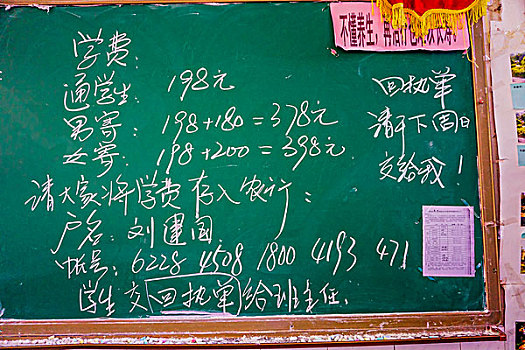 不懂养生,再治疗也难以长寿!
学费:
通学生: 198元
男寄: 198+180=378元
女寄: 198+200=398元
请大家将学费存入农行:
户名:刘建国
帐号:6228 4508 1800 4193 471
学生交回执单给班主任.
回执单
请于下周日
交给我!